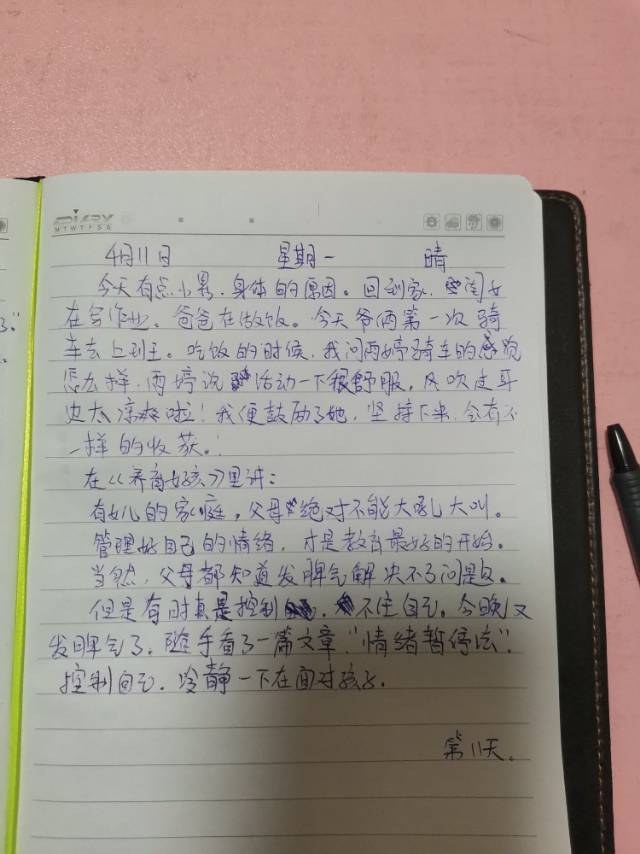 DIARY
MTWTFSS
4月11日 星期一 晴
今天有点小累.身体的原因。回到家.闺女
在写作业。爸爸在做饭。今天爷俩第一次骑
车去上班。吃饭的时候.我问雨婷骑车的感觉
怎么样.雨婷说活动一下很舒服,风吹过耳
边太凉爽啦!我便鼓励了她,坚持下来.会有不
一样的收获。
在《养育女孩》里讲:
有女儿的家庭,父母绝对不能大吼大叫。
管理好自己的情绪,才是教育最好的开始。
当然,父母都知道发脾气解决不了问题。
但是有时真是控制不住自己。今晚又
发脾气了.随手看了一篇文章."情绪暂停法".
控制自己.冷静一下在面对孩子.
第11天.